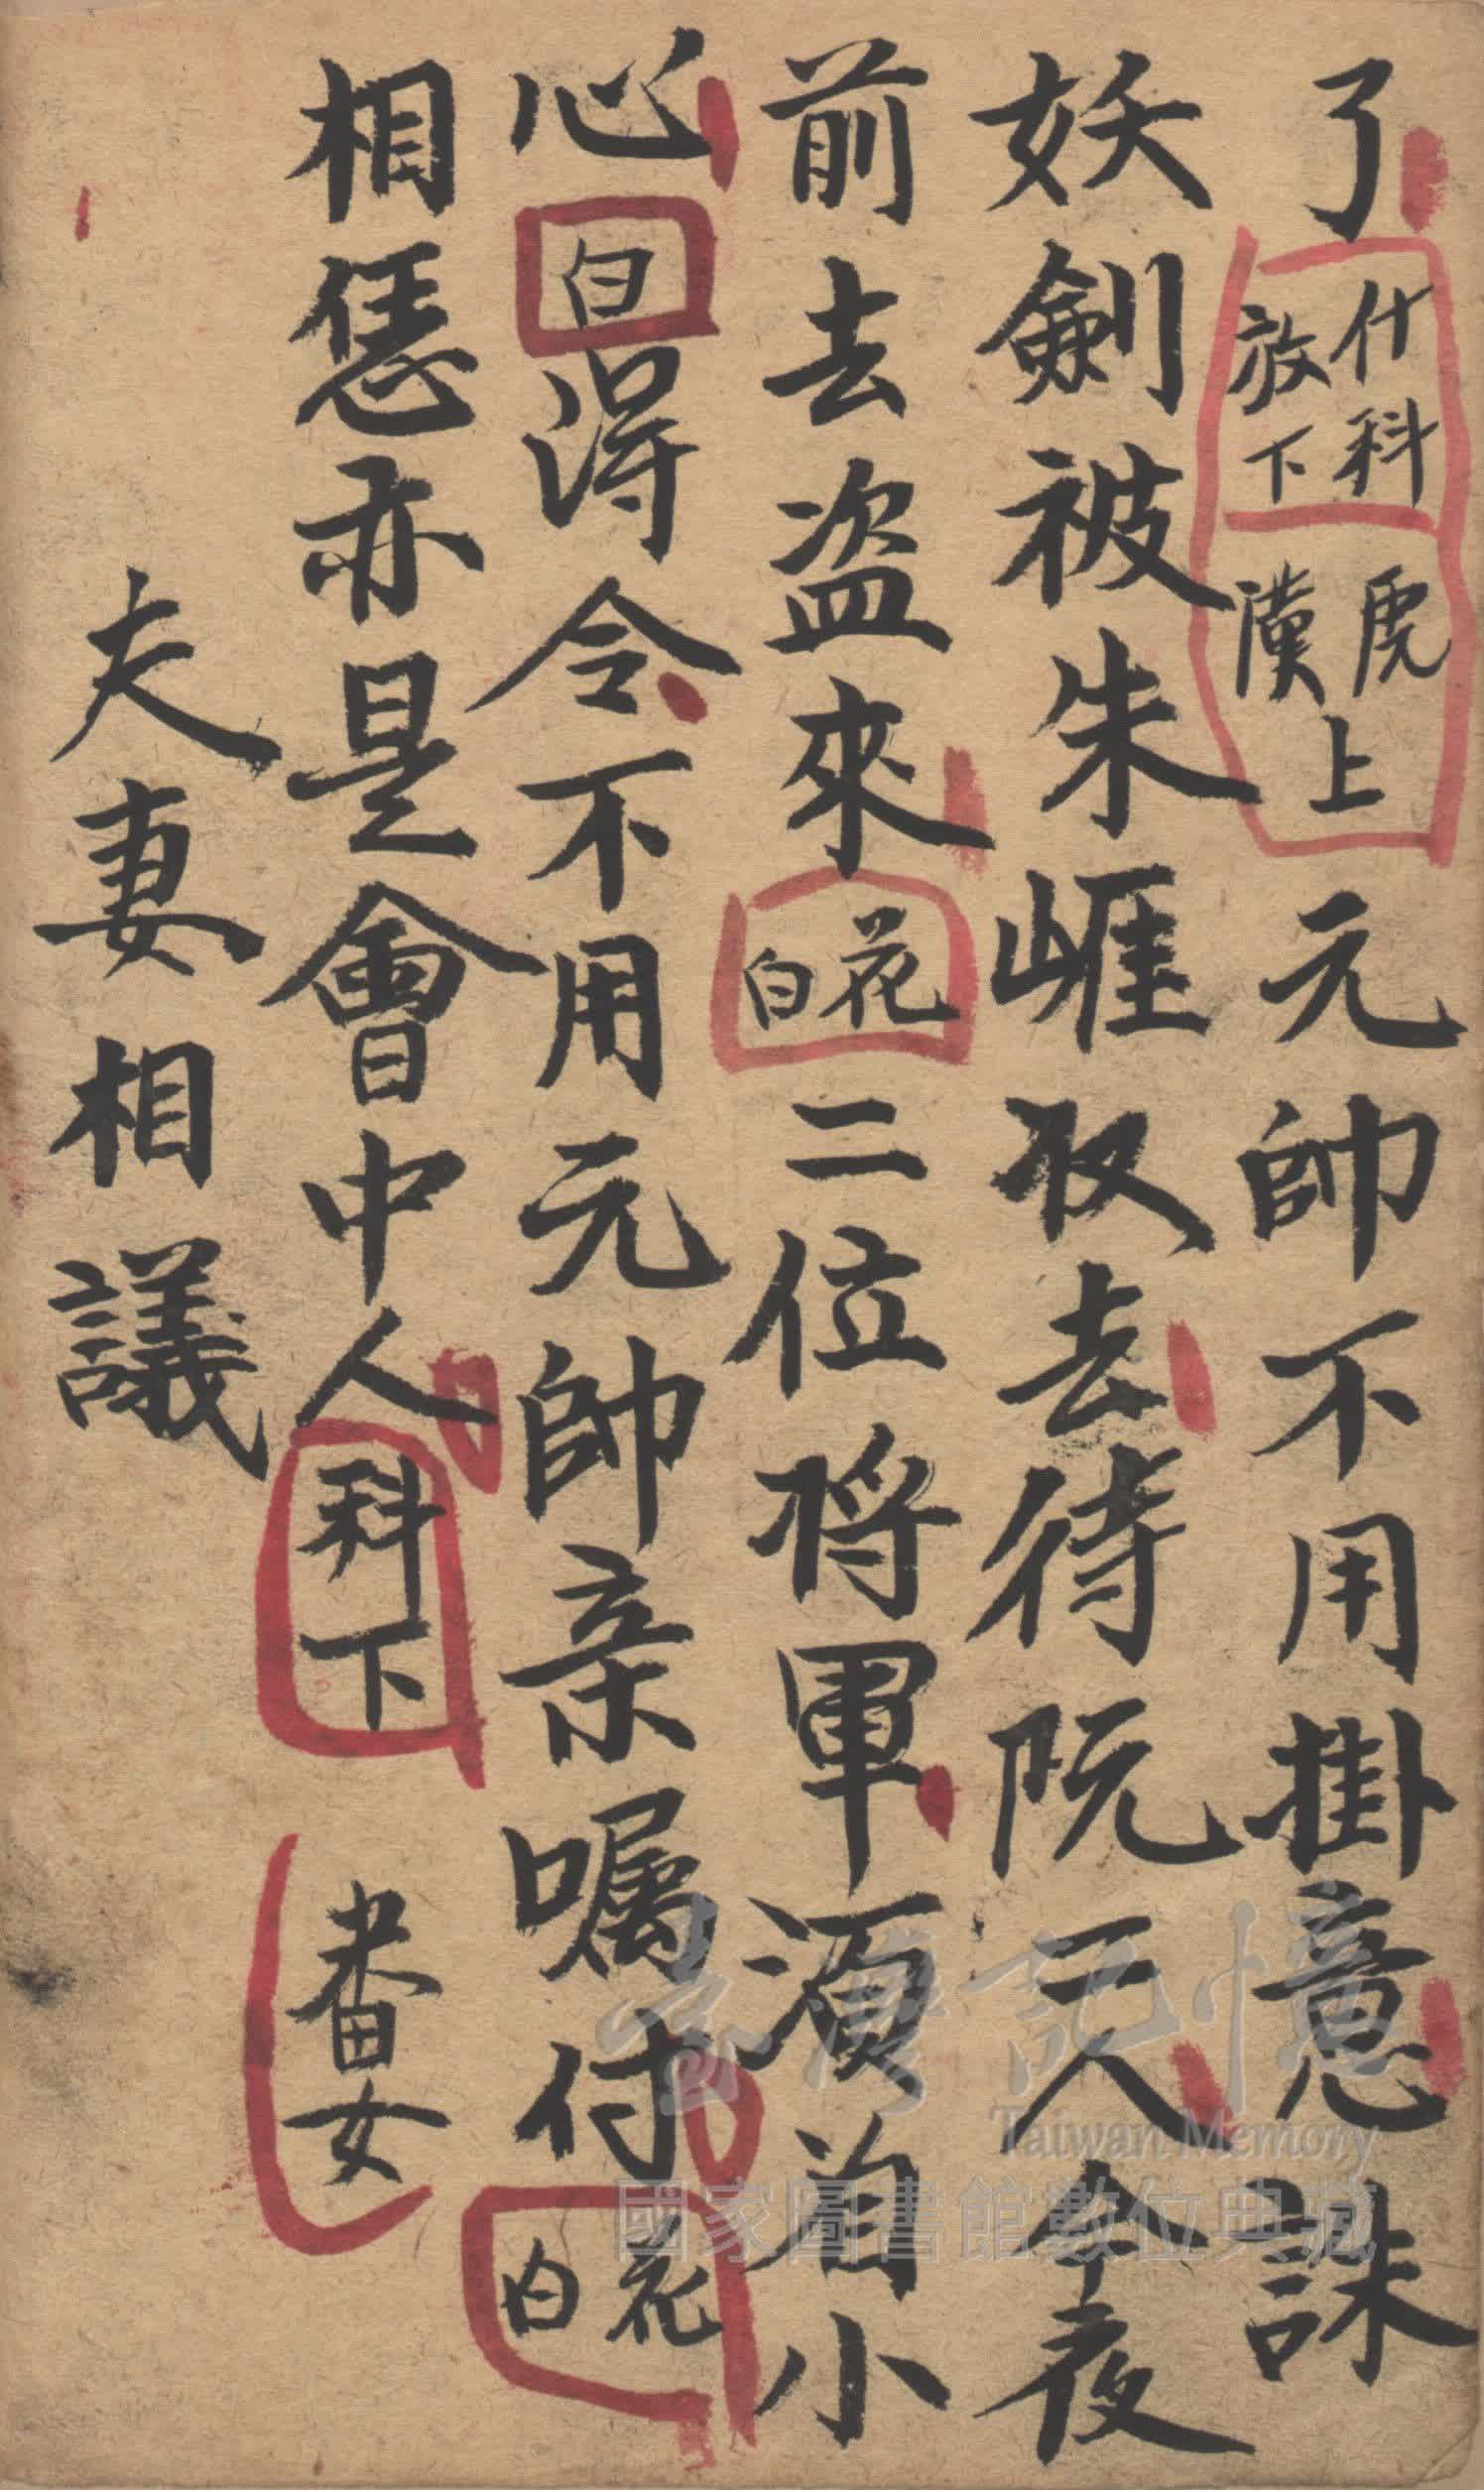 了 什科放下 虎漢上 元帥不用掛意誅
妖劍被朱崕取去待阮二人今夜
前去盗來 花白 二位将軍須着小
心 白 淂令不用元帥亲囑付 花白
相恁亦是會中人 科下 畨女
夫妻相議
臺灣記憶
Taiwan Memory
國家圖書館數位典藏